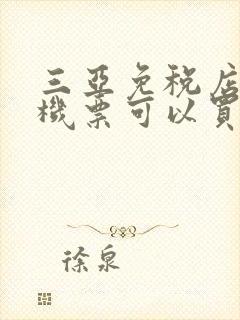 三亞免稅店
機票可以買
徐泉